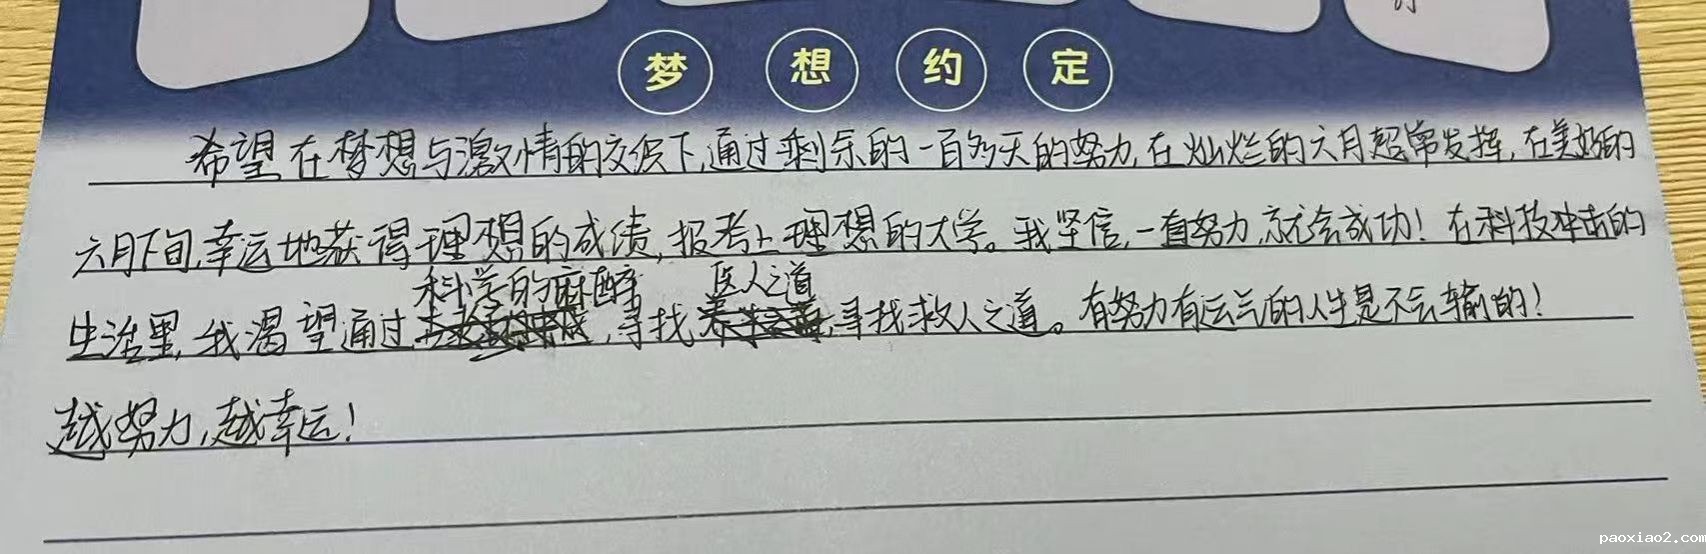 梦想约定
希望在梦想与激情的交织下,通过剩余的一百多天的努力,在灿烂的六月超常发挥,在美好的
六月下旬,幸运地获得理想的成绩,报考上理想的大学。我坚信,一直努力,就会成功!在科技冲击的
科学的麻醉 医人之道
生活里,我渴望通过,寻找,寻找救人之道。有努力有运气的人生是不会输的!
越努力,越幸运!
paoxiao2.com